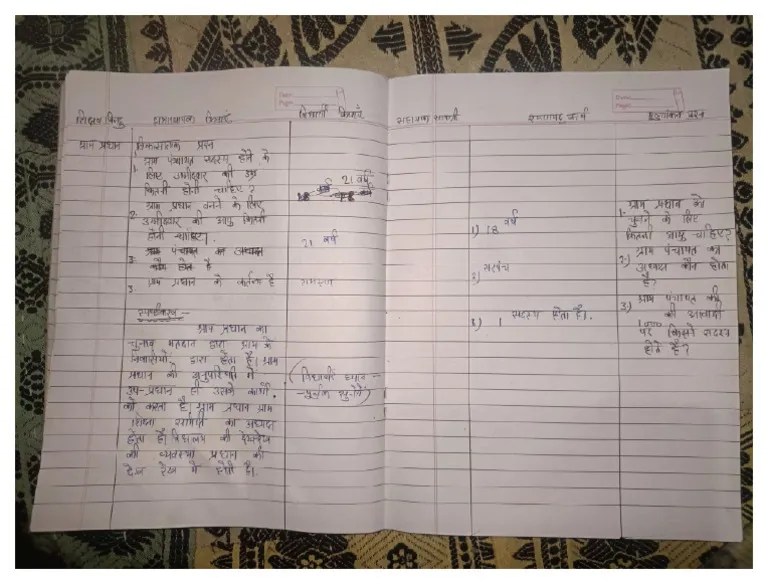 शिक्षण बिन्दु छात्राध्यापक क्रियाएं विद्यार्थी क्रियाएं सहायक सामग्री श्यामपट्ट कार्य मूल्यांकन प्रश्न
ग्राम प्रधान विकासात्मक प्रश्न
1. ग्राम पंचायत सदस्य होने के
लिए उम्मीदवार की उम्र
कितनी होनी चाहिए?
21 वर्ष
ग्राम प्रधान बनने के लिए
2. उम्मीदवार की आयु कितनी
होनी चाहिए।
21 वर्ष
3. पंचायत का अध्यक्ष
कौन होता है
3. ग्राम प्रधान के कर्तव्य है
समस्या
स्पष्टीकरण –
ग्राम प्रधान का
चुनाव मतदान द्वारा ग्राम के
निवासियों द्वारा होता है। ग्राम
प्रधान की अनुपस्थिति में
उप-प्रधान ही उसके कार्यो
को करता है। ग्राम प्रधान ग्राम
शिक्षा समिति का अध्यक्ष
होता है। विद्यालय की देखरेख
की व्यवस्था प्रधान की
देख रेख में होती है।
(विद्यार्थी ध्यान –
– पूर्वक सुनेंगे)
1) 18 वर्ष
2) सरपंच
3) 1 सदस्य होता है।
1. ग्राम प्रधान को
चुनने के लिए
कितनी आयु चाहिए?
2.) ग्राम पंचायत का
अध्यक्ष कौन होता
है?
3) ग्राम पंचायत की
की आबादी
1000
पर कितने सदस्य
होते है?